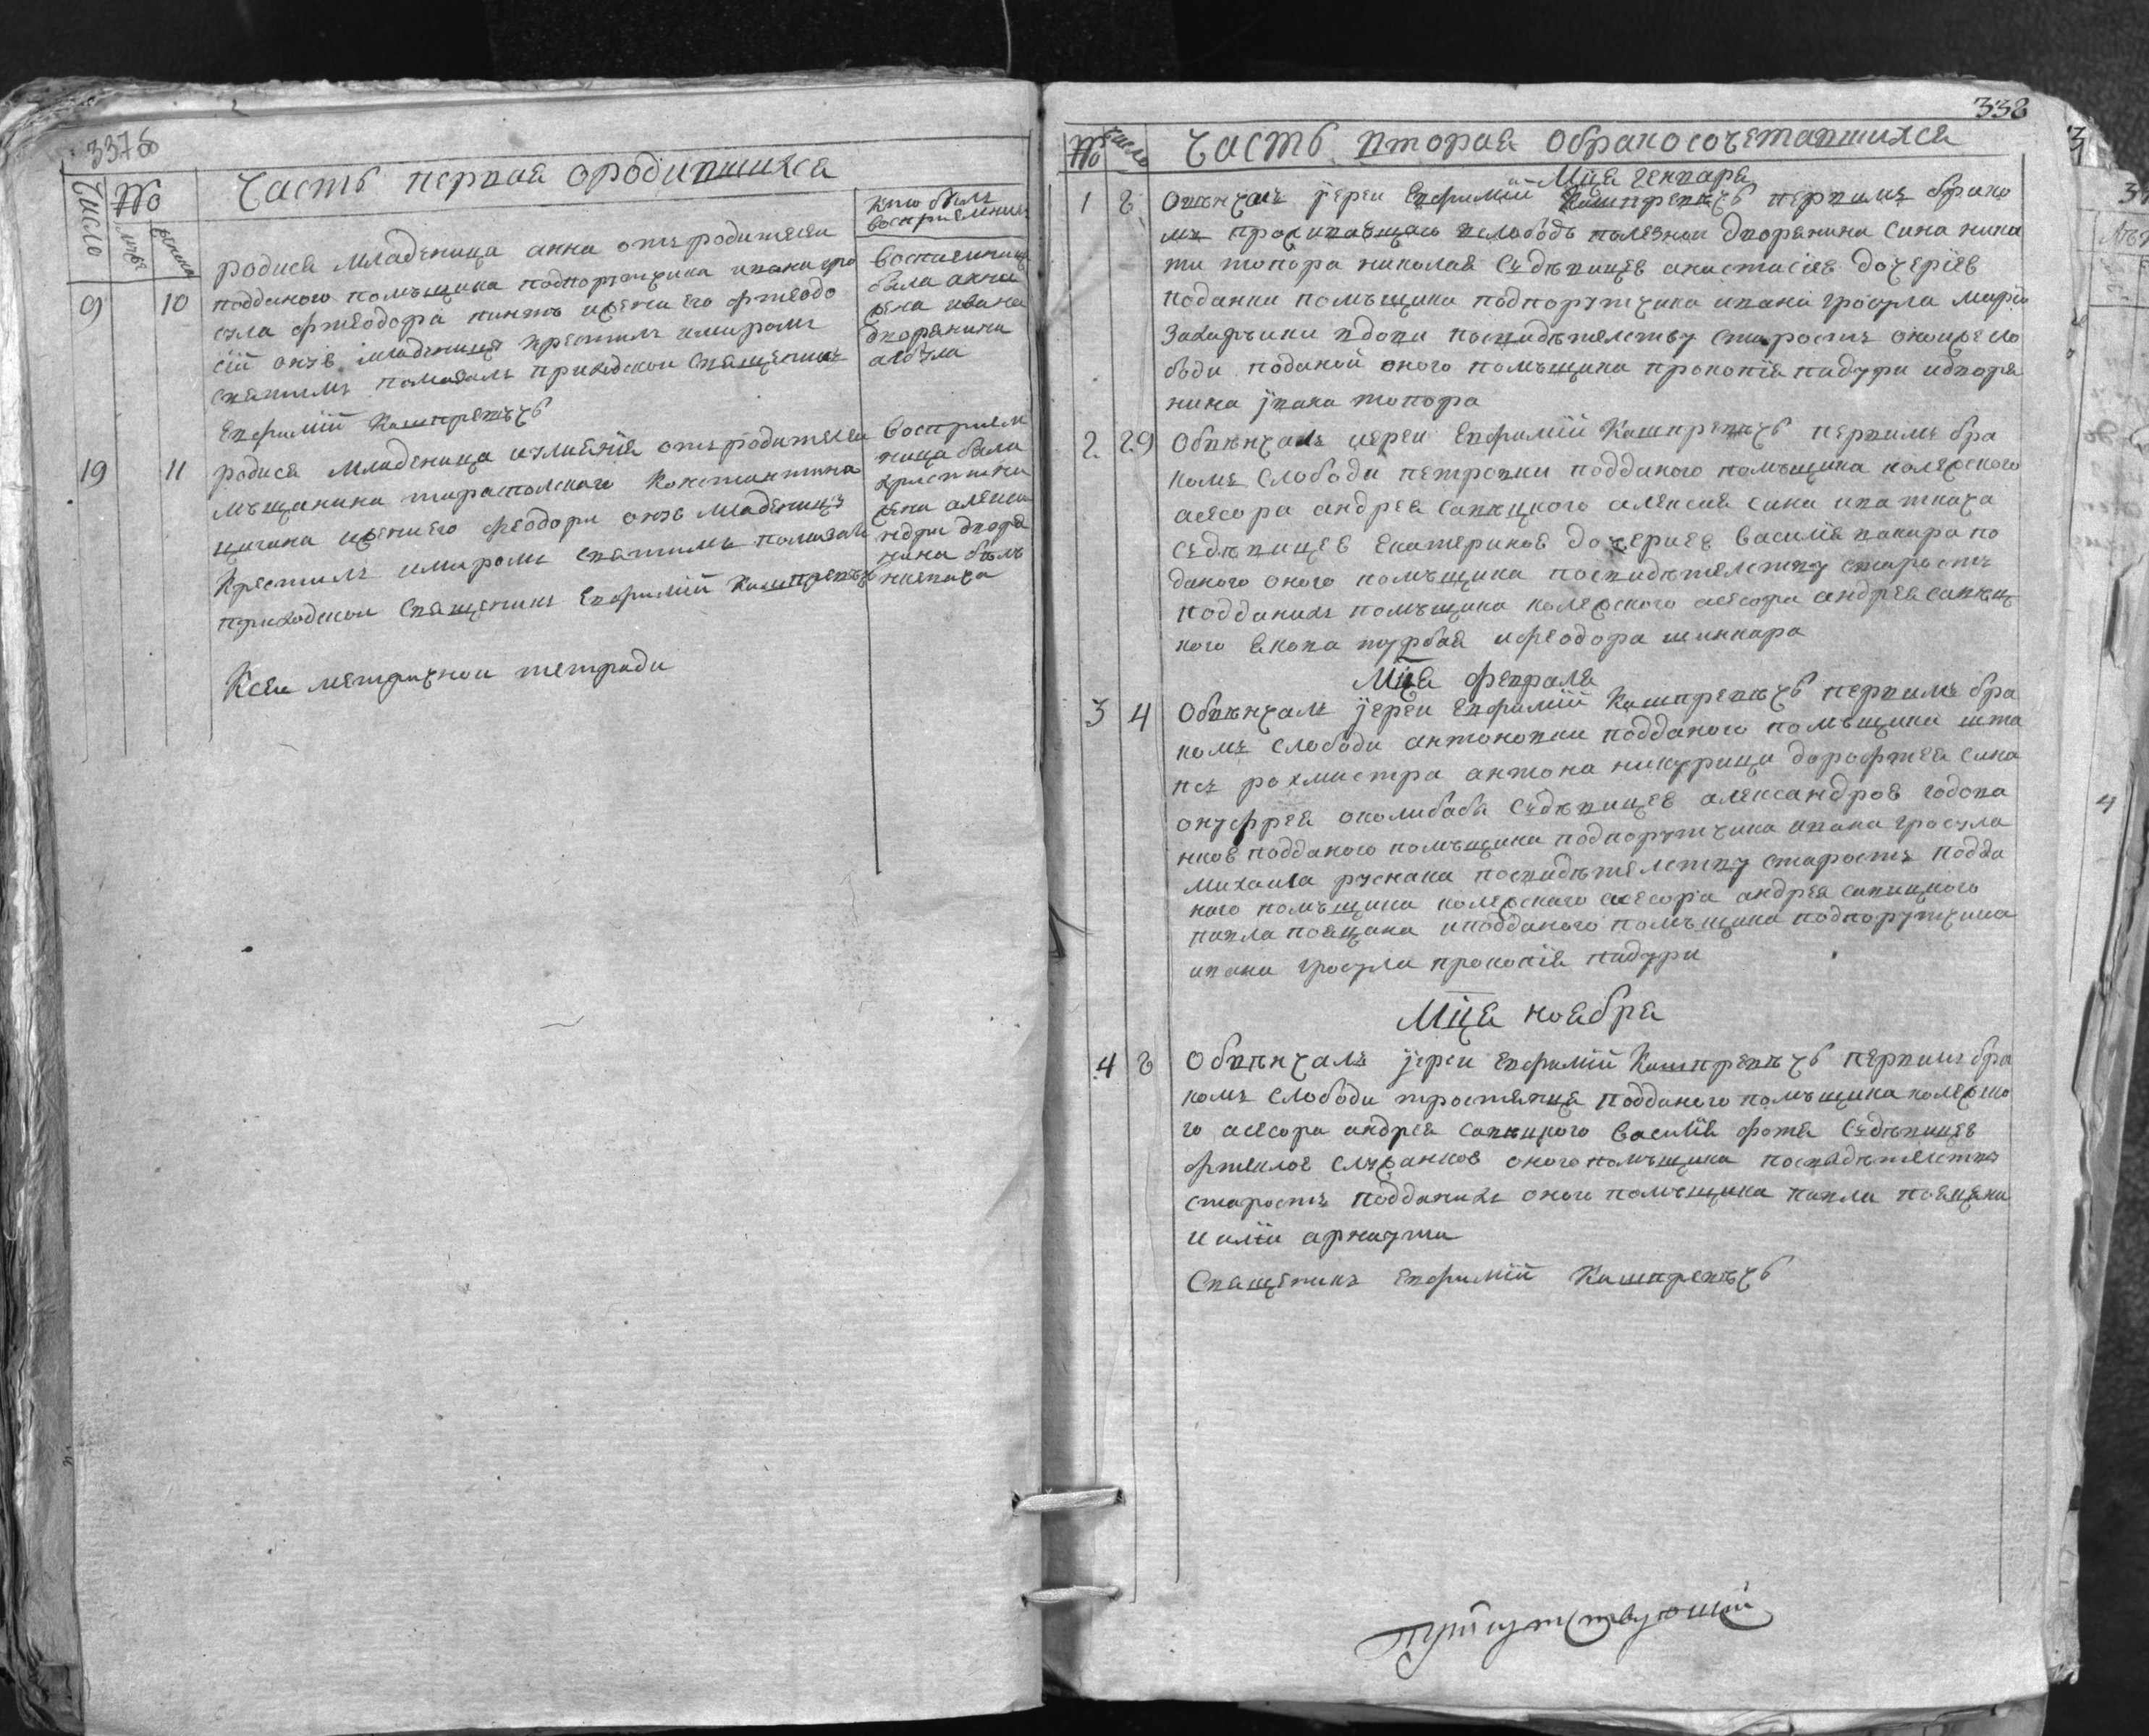 337
Часть первая ородившихся
Число
No
кто былъ
воспрiемникъ
9
10
родися младеница анна отъ родителей
подданого помъщика подпорутчика ивана гро
сула
женi его феодо
сiй онзв младеницз крестилъ имиромъ
святимъ помазалъ приходскои священикъ
Евфимiй Кашпревѣчъ
была анна
жена ивана
дворянина
19
11
родися младеница отъ родителей
мъщанина тираспольского Константина
цигана ижени его феодори онзв младеницз
Крестилъ имиромъ святимъ помазалъ
приходскои священикъ Евфимiй Кашпревѣчъ
восприем
ница была
християна
жена алекса
ндри дворя
нина
Ксеи метричнои тетради
338
No
число
Часть вторая обракосочетавшихся
Мца генвара
1
8
Овѣнчалъ iереи Евфимiй Кашпревѣчъ первимъ брако
мъ проживающаго вслободъ полезнои дворянина сина ники
ти топора николая сздѣвицев анастасiев дочерiев
поданки помъщика подпорутчика ивана гросула марiи
вдови посвидѣтелству старостъ оноижесло
боди поданой оного помъщика прокопiя падури идворя
нина iвана топора
2
29
Обвѣнчалъ иереи Евфимiй Кашпревѣчъ первимъ бра
комъ слободи петровки подданого помъщика колежского
асесора андрея савицкого алексия сина игнаткача
сздѣвицев екатеринов дочериев василiя по
даного оного помъщика посвидѣтелству старостъ
подданихъ помъщика колежского асесора андрея савиц
кого якова турбая ифеодора шинкара
Мца феврала
3
4
Обвѣнчалъ iереи Евфимiй Кашпревѣчъ первимъ бра
комъ слободи антоновки подданого помъщика шта
псъ рохмистра антона никорици дорофтея сина
онуфрея околибаби сздѣвицев александров годова
нков подданого помъщика подпорутчика ивана гросула
михаила руснака посвидѣтелству старостъ подда
ного помъщика колежского асесора андрея савицкого
павла поящана иподданого помъщика подпорутчика
ивана гросула прокопiя падури
Мца ноабра
4
8
Обвѣнчалъ iереи Евфимiй Кашпревѣчъ первимъ бра
комъ слободи тростянця подданого помъщика колежско
го асесора андрея савицкого василiя фотя сздѣвицев
фтеклов служанков оного помъщика посвидѣтелству
старостъ подданихъ оного помъщика павла поящана
и илiи арнаути
Священикъ Евфимiй Кашпревѣчъ